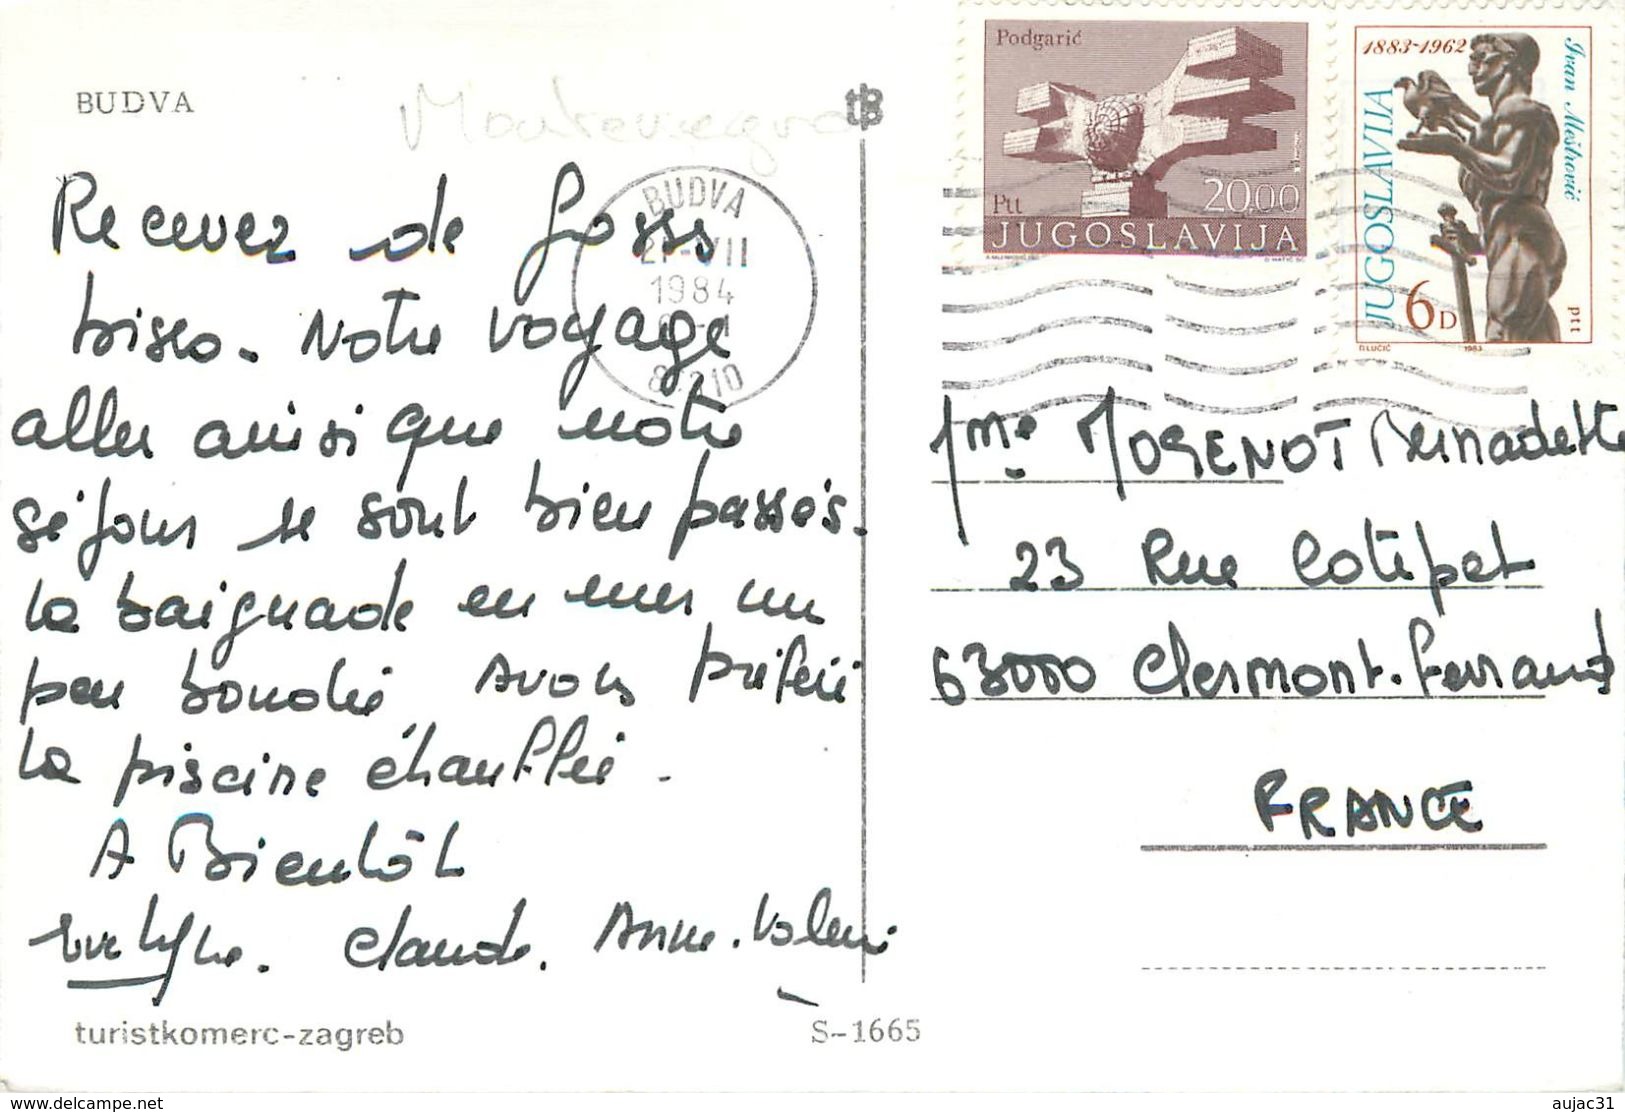 BUDVA
Montenegro
tB
Recevez de gosss
bises. Notre voyage
aller ainsi que notre
séjour se sont bien passés.
la baignade en mer un
peu boudé avons préféré
la piscine échauffée.
A Bientôt
Evelyne. Claude. Anne. Valerie
turistkomerc-zagreb
S-1665
BUDVA
1984
Podgarić
Ptt
20,00
JUGOSLAVIJA
1883-1962
Ivan Meštrović
JUGOSLAVIJA
6D
ptt
D.LUČIĆ 1983
Mme MOGENOT Bernadette
23 Rue Cotepet
63000 Clermont-Ferrand
FRANCE
https://www.delcampe.net
aujac31